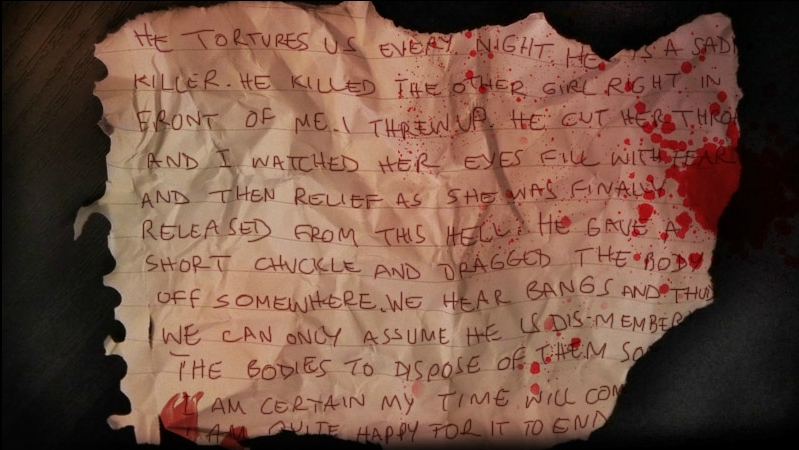 HE TORTURES US EVERY NIGHT HE IS A SADI
KILLER. HE KILLED THE OTHER GIRL RIGHT IN
FRONT OF ME. I THREW UP. HE CUT HER THRO
AND I WATCHED HER EYES FILL WITH FEAR
AND THEN RELIEF AS SHE WAS FINALLY
RELEASED FROM THIS HELL. HE GAVE A
SHORT CHUCKLE AND DRAGGED THE BODY
OFF SOMEWHERE. WE HEAR BANGS AND THUD
WE CAN ONLY ASSUME HE IS DIS-MEMBER
THE BODIES TO DISPOSE OF THEM SO
I AM CERTAIN MY TIME WILL COM
I AM QUITE HAPPY FOR IT TO END